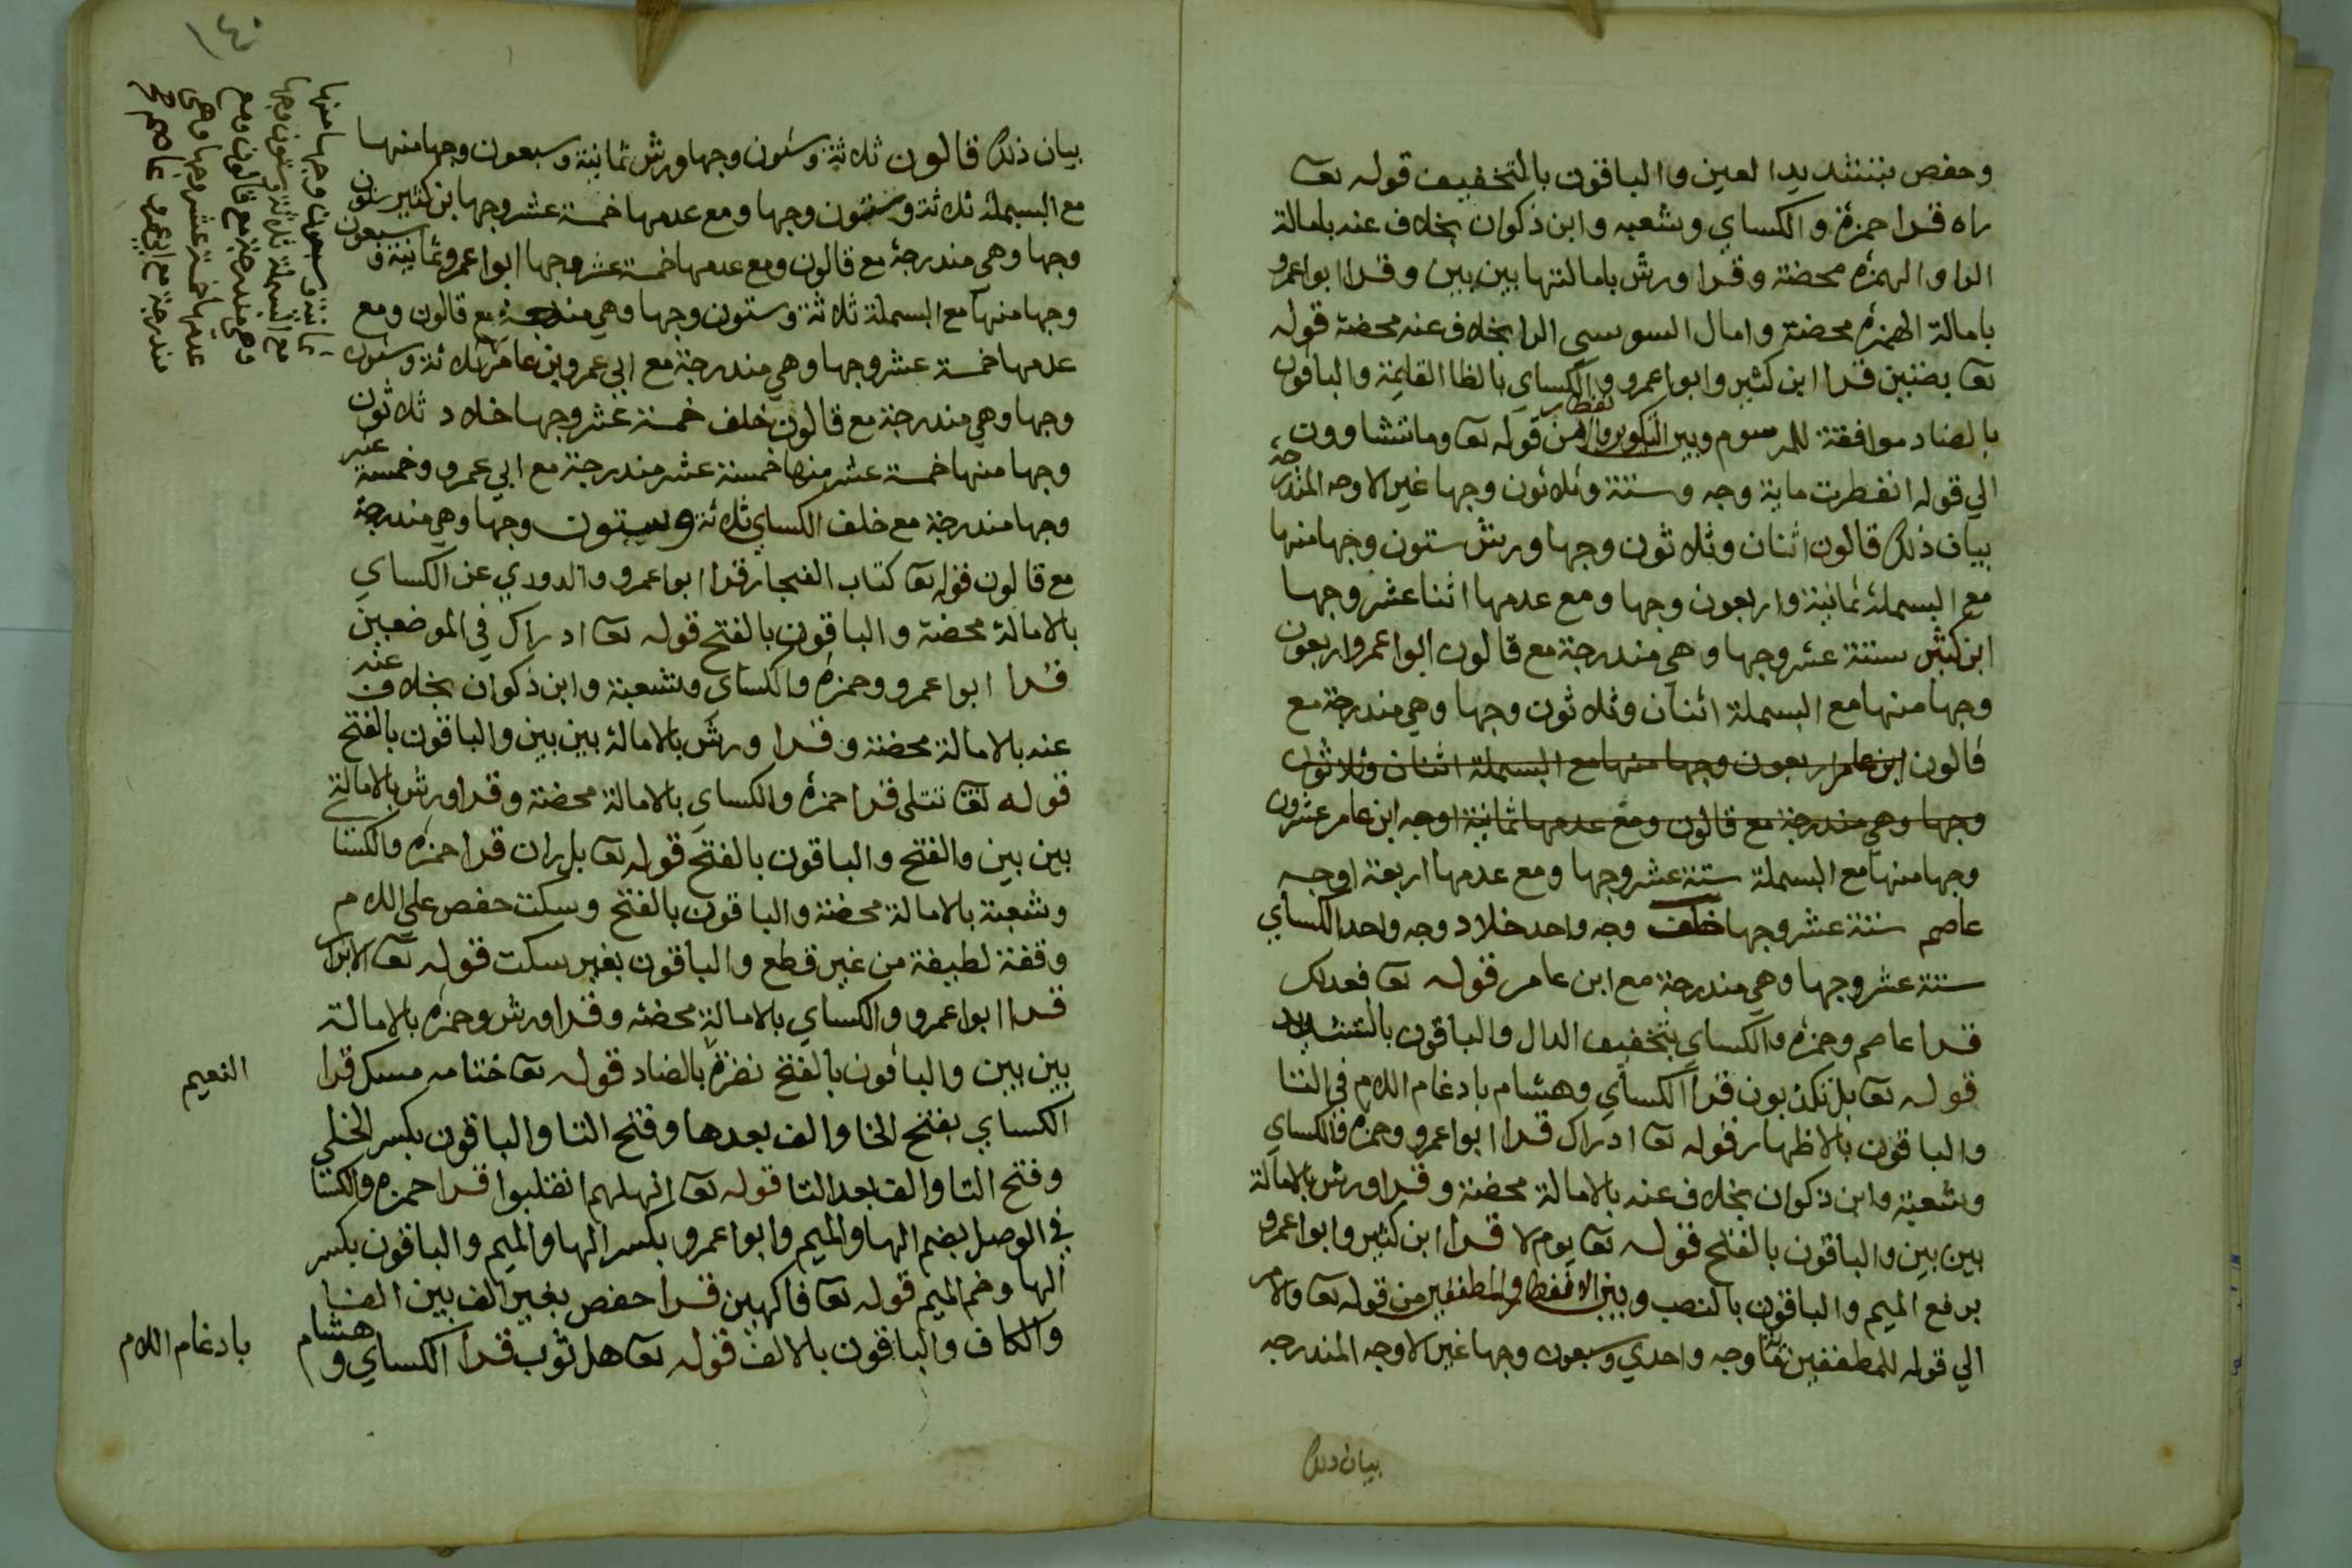 وحفص بتشديد العين والباقون بالتخفيف قوله تعا
راه قرا حمزة والكساي وشعبه وابن ذكوان بخلاف عنه بامالة
الرا والهمزه محضة وقرا ورش بامالتها بين بين وقرا ابوا عمرو
بامالة الهمزه محضة وامال السوسي الرا بخلاف عنه محضة قوله
تعا بضنين قرا ابن كثير وابوا عمرو والكساي بالظا القايمة والباقون
بالضاد موافقة للمرسوم وبين التكوير والانفطار من قوله تعا وما تشاوون
الي قوله انفطرت ماية وجه وستة وثلاثون وجها غير الاوجه المندرجة
بيان ذلك قالون اثنان وثلاثون وجها ورش ستون وجها منها
مع البسملة ثمانية واربعون وجها ومع عدمها اثنا عشر وجها
ابن كثير ستة عشر وجها وهي مندرجة مع قالون ابوا عمرو اربعون
وجها منها مع البسملة اثنان وثلاثون وجها وهي مندرجة مع
قالون ابن عامر اربعون وجها منها مع البسملة اثنان وثلاثون
وجها وهي مندرجة مع قالون ومع عدمها ثمانية اوجه ابن عامر عشرون
وجها منها مع البسملة ستة عشر وجها ومع عدمها اربعة اوجه
عاصم ستة عشر وجها خلف وجه واحد خلاد وجه واحد الكساي
ستة عشر وجها وهي مندرجة مع ابن عامر قوله تعا فعدلك
قرا عاصم وحمزه والكساي بتخفيف الدال والباقون بالتشديد
قوله تعا بل تكذبون قرا الكساي وهشام بادغام اللام في التا
والباقون بالاظهار قوله تعا ادراك قرا ابوا عمرو وحمزه والكساي
وشعبة وابن ذكوان بخلاف عنه بالامالة محضة وقرا ورش بالامالة
بين بين والباقون بالفتح قوله تعا يوم لا قرا ابن كثير وابوا عمرو
برفع الميم والباقون بالنصب وبين الانفطار والمطففين من قوله تعا والامر
الي قوله للمطففين وجه واحدي وسبعون وجها غير الاوجه المندرجه
بيان ذلك
١٤٠
بيان ذلك قالون ثلاثة وستون وجها ورش ثمانية وسبعون وجها منها
مع البسملة ثلاثة وستون وجها ومع عدمها خمسة عشر وجها ابن كثير ستون
وجها وهي مندرجة مع قالون ومع عدمها خمسة عشر وجها ابوا عمرو ثمانية وسبعون
وجها منها مع البسملة ثلاثة وستون وجها وهي مندرجة مع قالون ومع
عدمها خمسة عشر وجها وهي مندرجة مع ابي عمرو ابن عامر ثلاثة وستون
وجها وهي مندرجة مع قالون خلف خمسة عشر وجها خلاد ثلاثون
وجها منها خمسة عشر منها خمسة عشر مندرجة مع ابي عمرو وخمسة عشر
وجها مندرجة مع خلف الكساي ثلاثة وستون وجها وهي مندرجة
مع قالون قوله تعا كتاب الفجار قرا ابوا عمرو والدوري عن الكساي
بالامالة محضة والباقون بالفتح قوله تعا ادراك في الموضعين
قرا ابوا عمرو وحمزه والكساي وشعبة وابن ذكوان بخلاف عنه
عنه بالامالة محضة وقرا ورش بالامالة بين بين والباقون بالفتح
قوله تعا تتلي قرا حمزه والكساي بالامالة محضة وقرا ورش بالامالة
بين بين والفتح والباقون بالفتح قوله تعا بل ران قرا حمزه والكسا
وشعبة بالامالة محضة والباقون بالفتح وسكت حفص علي اللام
وقفة لطيفة من غير قطع والباقون بغير سكت قوله تعا الابرار
قرا ابوا عمرو والكساي بالامالة محضه وقرا ورش وحمزه بالامالة
بين بين والباقون بالفتح نضرة بالضاد قوله تعا ختامه مسك قرا
الكساي بفتح الخا والف بعدها وفتح التا والباقون بكسر الخا
وفتح التا والف بعد التا قوله تعا اهلهم انقلبوا قرا حمزه والكسا
في الوصل بضم الها والميم وابوا عمرو بكسر الها والميم والباقون بكسر
الها وضم الميم قوله تعا فاكهين قرا حفص بغير الف بين الفا
والكاف والباقون بالالف قوله تعا هل ثوب قرا الكساي وهشام
ثمانية وسبعون وجها منها
مع البسملة ثلاثة وستون وجها
وهي مندرجة مع قالون ومع
عدمها خمسة عشر وجها وهي
مندرجة مع ابي عمرو عاصم صح
النعيم
بادغام اللام